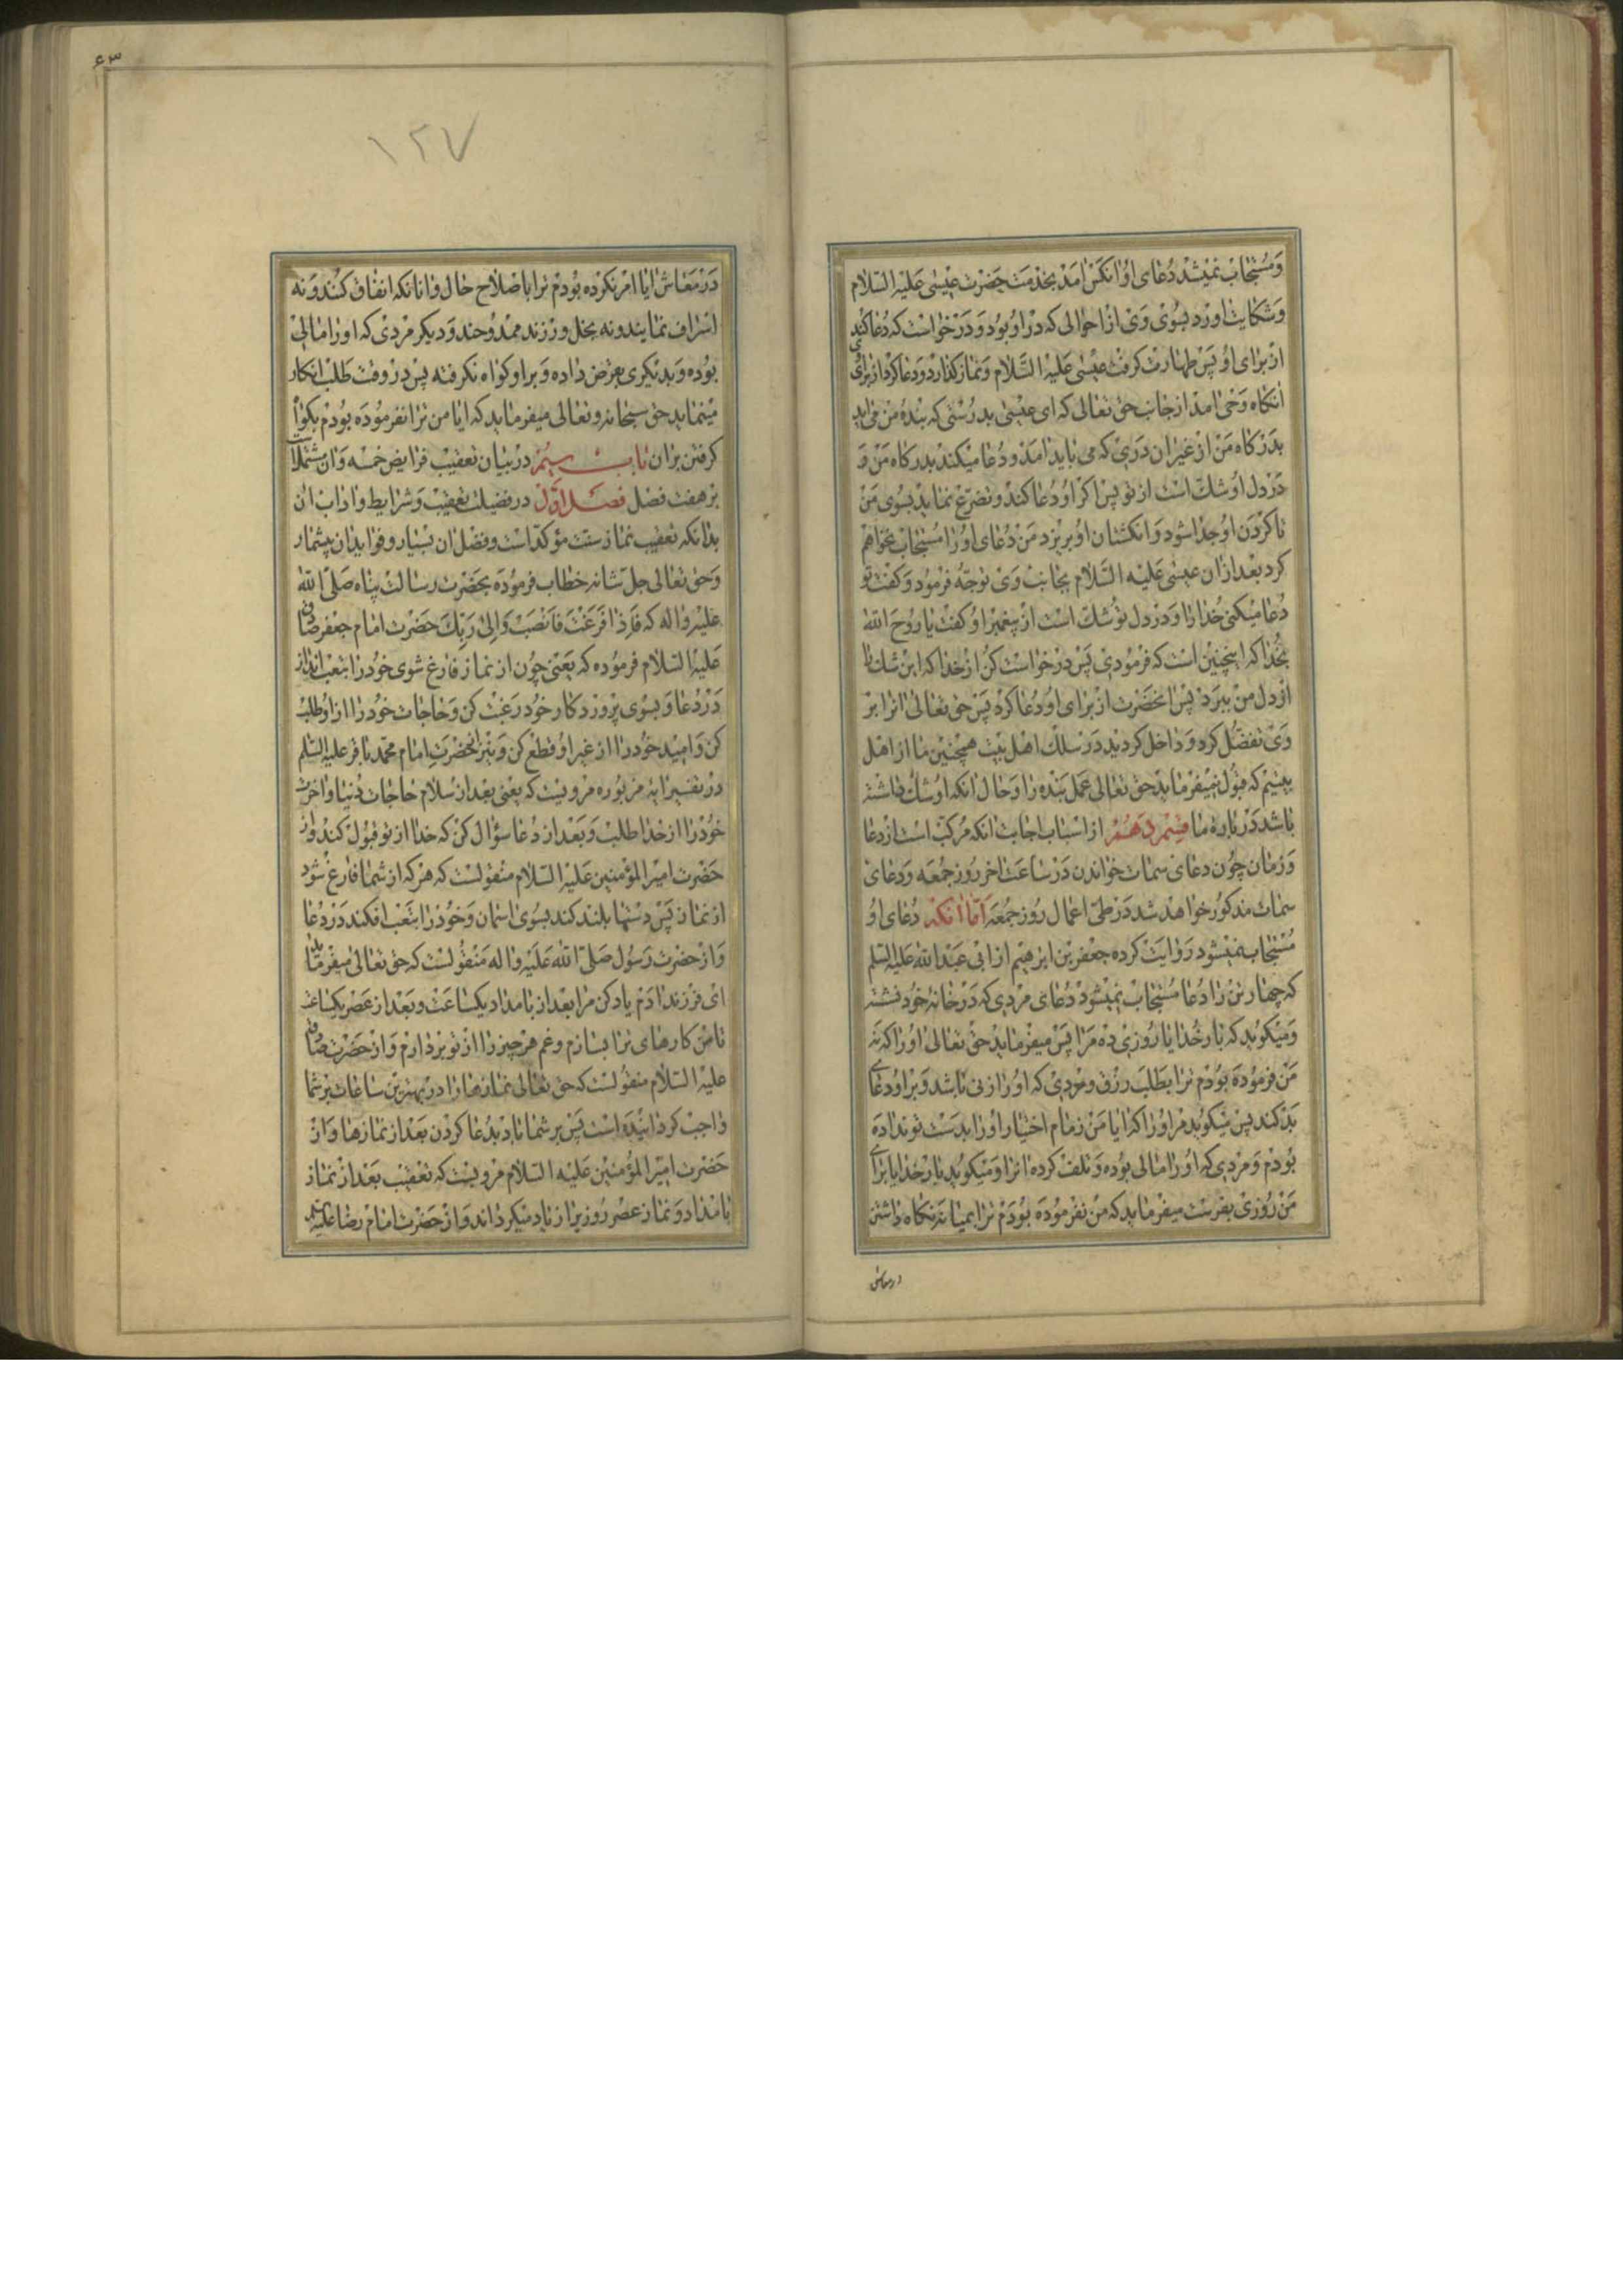 وَمُستجاب نمیشد دُعای اوُ انکس امد بخدمت حضرت عیسی علیه السّلام
وشکایت اورد بسوی وی از احوالی که در او بود و درخواست که دعا کند
از برای او پس طهارت کرفت عیسی علیه السّلام ونماز کذارد و دعا کرد از برای وی
انکاه وحی امد از جانب حق تعالی که ای عیسی بدرستی که بندهٔ من می اید
بدرکاه من از غیر ان دری که می باید امد و دعا میکند بدرکاه من و
در دل او شک است از تو پس اکر او دعا کند و تضرّع نماید بسوی من
تا کردن او جدا شود و انکشتان او بریزد من دعای او را مستجاب نخواهم
کرد بعد از ان عیسی علیه السّلام بجانب وی توجّه فرمود و کفت تو
دعا میکنی خدا را و در دل تو شک است از پیغمبر او کفت یا روح الله
بخدا که اینچنین است که فرمودی پس درخواست کن از خدا که این شک را
از دل من ببرد پس انحضرت از برای او دعا کرد پس حق تعالی انرا بر
وی تفضّل کرد و داخل کردید در سلک اهل بیت همچنین ما از اهل
بیتیم که قبول نمیفرماید حق تعالی عمل بنده را و حال انکه او شک داشته
باشد در بارهٔ ما قسم دهم از اسباب اجابت انکه مرکّب است از دعا
و زمان چون دعای سمات خواندن در ساعت اخر روز جمعه و دعای
سمات مذکور خواهد شد در طی اعمال روز جمعه امّا انکه دعای او
مستجاب نمیشود روایت کرده جعفر بن ابرهیم از ابی عبد الله علیه السلم
که چهار تن را دعا مستجاب نمیشود دعای مردی که در خانهٔ خود نشسته
و میکوید که بار خدایا روزی ده مرا پس میفرماید حق تعالی او را که نه
من فرموده بودم ترا بطلب رزق و مردی که او را زنی باشد و بر او دعای
بد کند پس میکوید مر او را که ایا من زمام اختیار او را بدست تو نداده
بودم و مردی که او را مالی بوده و تلف کرده انرا و میکوید بار خدایا برای
من روزی بفرست میفرماید که من نفرموده بودم ترا بمیانه نکاه داشتن
در معاش
٦٣
١٢٧
در معاش ایا امر نکرده بودم ترا باصلاح حال و انانکه انفاق کنند و نه
اسراف نمایند و نه بخل ورزند ممدوحند و دیکر مردی که او را مالی
بوده و بدیکری بقرض داده و بر او کواه نکرفته پس در وقت طلب انکار
مینماید حق سبحانه و تعالی میفرماید که ایا من ترا نفرموده بودم بکواه
کرفتن بران باب سیم در بیان تعقیب فرایض خمسه و ان مشتملست
بر هفت فصل فصل اوّل در فضیلت تعقیب و شرایط و اداب ان
بدانکه تعقیب نماز سنّت مؤکّد است و فضل ان بسیار و فواید ان بیشمار
و حق تعالی جل شانه خطاب فرموده بحضرت رسالت پناه صلّی الله
علیه و اله که فَاِذا فَرَغْتَ فَانْصَبْ وَاِلی رَبِّکَ حضرت امام جعفر صادق
علیه السّلام فرموده که یعنی چون از نماز فارغ شوی خود را بتعب انداز
در دعا و بسوی پروردکار خود رغبت کن و حاجات خود را از او طلب
کن و امید خود را از غیر او قطع کن و نیز انحضرت امام محمد باقر علیه السلم
در تفسیر ایهٔ مزبوره مرویست که یعنی بعد از سلام حاجات دنیا و اخرت
خود را از خدا طلب و بعد از دعا سؤال کن که خدا از تو قبول کند و از
حضرت امیر المؤمنین علیه السّلام منقولست که هر که از شما فارغ شود
از نماز پس دستها بلند کند بسوی اسمان و خود را بتعب افکند در دعا
و از حضرت رسول صلّی الله علیه و اله منقولست که حق تعالی میفرماید
ای فرزند ادم یاد کن مرا بعد از بامداد یکساعت و بعد از عصر یکساعت
تا من کارهای ترا بسازم و غم هر چیز را از تو بردارم و از حضرت صادق
علیه السّلام منقولست که حق تعالی نمازها را در بهترین ساعات بر شما
واجب کردانیده است پس بر شما باد بدعا کردن بعد از نمازها و از
حضرت امیر المؤمنین علیه السّلام مرویست که تعقیب بعد از نماز
بامداد و نماز عصر روزی را زیاد میکرداند و از حضرت امام رضا علیه السلم